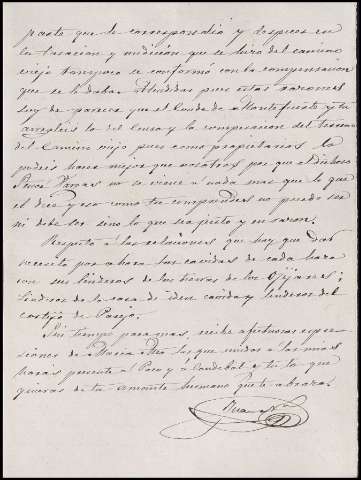 parte que le correspondia y despues en
la tasacion y medicion que se hizo del camino
viejo tampoco se conformó con la compensacion
que se le daba. Atendidas pues estas razones
soy de parecer que el Conde de Montefuerte y tu
arregleis lo del censo y la compensacion del terreno
del Camino viejo pues como propietarios lo
podeis hacer mejor que nosotros por que el dichoso
Perez Tamas no se viene a nada mas que lo que
el dice y eso como tu comprendes no puede ser
ni debe ser sino lo que sea justo y en razon.
Respecto á las relaciones que hay que dar
necesito por ahora las cavidas de cada haza
con sus linderos de las tierras de los
linderos de la casa de idem cavida y linderos del
cortijo de Parejo.
Sin tiempo para mas, recibe afectuosas espre-
siones de Maria las que unidas a las mias
harás presente á Paca y á Candebat y tu lo que
quieras de tu amante hermano que te abraza.
Juan